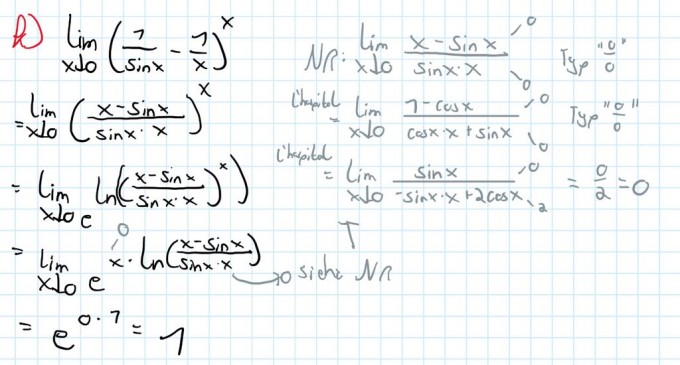 k) lim x↓0 (1/sinx - 1/x)^x
= lim x↓0 (x-sinx / sinx·x)^x
= lim x↓0 e^ln((x-sinx / sinx·x)^x)
= lim x↓0 e^x·ln(x-sinx / sinx·x) 0 → 0 siehe NR
= e^0·1 = 1
NR: lim x↓0 x-sinx / sinx·x →0 →0 Typ "0/0"
L'hospital = lim x↓0 1-cosx / cosx·x+sinx →0 →0 Typ "0/0"
L'hospital = lim x↓0 sinx / -sinx·x+2cosx →0 →2 = 0/2 = 0
↑